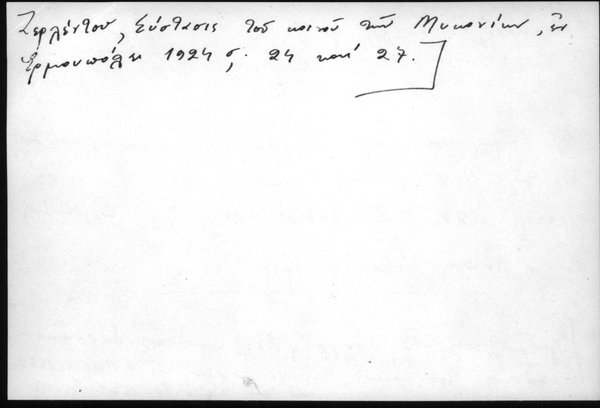 Ζερλέντου, Σύστασις τοῦ κοινοῦ τῶν Μυκονίων, ἐν
Ἑρμουπόλει 1924 σ. 24 καί 27.